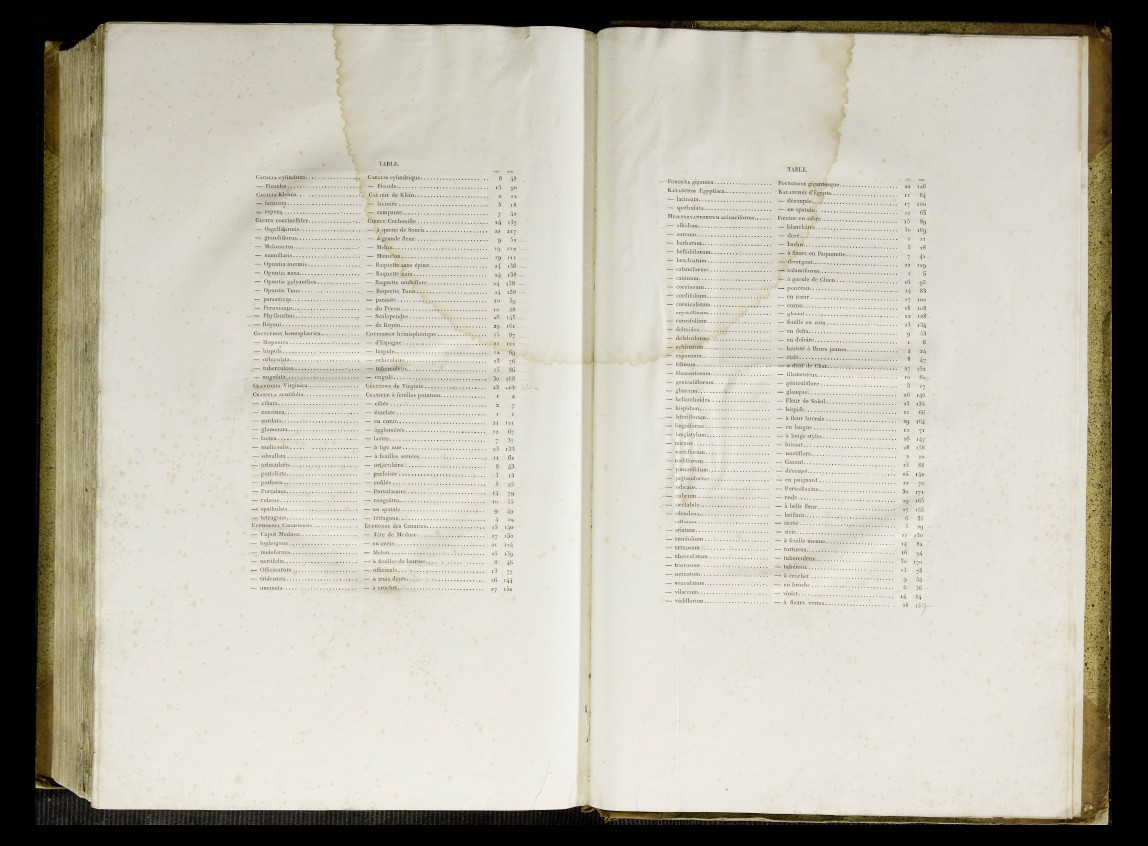 TABLE.
CACALIA cylindrica CACALIE cylindrique 8 48
— Ficoides — Ficoide 15 90
CACALIA Kleinia CACALIE de Klein 2 12
— laciniata — laciniée 3 18
— repens — rampante 7 42
CACTUS coccinellifer CIERGE Cochenille 24 137
— flagelliformis — à queue de Souris 22 127
— grandiflorus — à grande fleur 9 52
— Melocactus — Melon 19 112
— mamillaris — Mamelon 19 111
— Opuntia inermis — Raquette sans épine 24 138
— Opuntia nana — Raquette nain 24 138
— Opuntia polyanthos — Raquette multiflore 24 138
— Opuntia Tuna — Raquette Tuna 24 138
— parasiticus — parasite 10 59
— Peruvianus — du Pérou 10 58
— Phyllanthus — Scolopendre 26 145
— Royeni — de Royen 29 161
COTYLEDON hemisphærica COTYLEDON hémisphérique 15 87
— Hispanica — d'Espagne 21 122
— hispida — hispide 12 69
— orbiculata — orbiculaire 13 76
— tuberculosa — tuberculeux 15 86
— ungulata — ongulé 30 168
CLAYTONIA Virginica CLAYTONE de Virginie
CRASSULA acutifolia CRASSULE à feuilles pointues 1 2
— ciliata — ciliée 2 7
— coccinea — écarlate 1 1
— cordata — en cœur 21 121
— glomerata — agglomérée 12 67
— lactea — lactée 7 37
— nudicaulis — à tige nue 23 133
— obvallata — à feuilles serrées 11 61
— orbicularis — orbiculaire 8 43
— perfoliata — perfoliée 3 13
— perfossa — enfilée
— Portulaca — Portulacaire 14 79
— rubens — rougeâtre 10 55
— spathulata — en spatule 9 49
— tetragona — tétragone 4 19
EUPHORBIA Canariensis EUPHORBE des Canaries
— Caput Medusæ — Tête de Méduse 27 150
— lophogona — en crête
— meloformis — Melon 25 139
— nerifolia — à feuilles de laurose 8 46
— Officinarum — officinale 13 77
— tridentata — à trois dents 26 144
— uncinata — à crochet 27 151
TABLE.
FURCRÆA gigantea FURCRESSE gigantesque 22 126
KALANCHOE Ægyptiaca KALANCHÉE d'Égypte 11 64
— laciniata — découpée 17 100
— spathulata — en spatule 11 65
MESEMBRYANTHEMUM acinaciforme FICOÏDE en sabre 15 89
— albidum — blanchâtre 30 169
— aureum — doré 2 11
— barbatum — barbu 5 28
— bellidiflorum — à fleurs en Paquerette 7 41
— brachiatum — divergent 22 129
— calamiforme — calamiforme 1 5
— caninum — à gueule de Chien 16 95
— coccineum — ponceau 14 83
— cordifolium — en cœur 17 102
— corniculatum — cornu 18 108
— crystallinum — glacial 22 128
— cuneifolium — feuille en coin 23 134
— deltoides — en delta 9 53
— dolabriforme — en doloire 1 6
— echinatum — hérissé à fleurs jaunes 4 24
— expansum — étalé 8 47
— felinum — à dent de Chat 27 152
— filamentosum — filamenteux 10
— geniculiflorum — géniculiflore 3 17
— glaucum — glauque 26 146
— helianthoides — Fleur de Soleil
— hispidum — hispide 11 66
— lateriflorum — à fleur latérale 29 164
— linguiforme — en langue 12 71
— longistylum — à longs styles 26 147
— micans — luisant 28 158
— noctiflorum — noctiflore 2 10
— nodiflorum — Gazoul 15 88
— pinnatifidum — découpé
— pugioniforme — en poignard 12 72
— radicans — Porte-Racine 30 171
— rubrum — rude 29 165
— spectabile — à belle fleur
— splendens — brillant 6 35
— strié
— tenuifolium — à feuille menue 14 82
— tortuosum — tortueux 16 94
— tuberculatum — tuberculeux 30 170
— tuberosum — tubéreux 13 78
— uncinatum — à crochet 9 54
— veruculatum — en broche 6 36
— violaceum — violet 14 84
— viridiflorum — à fleurs vertes 28 159